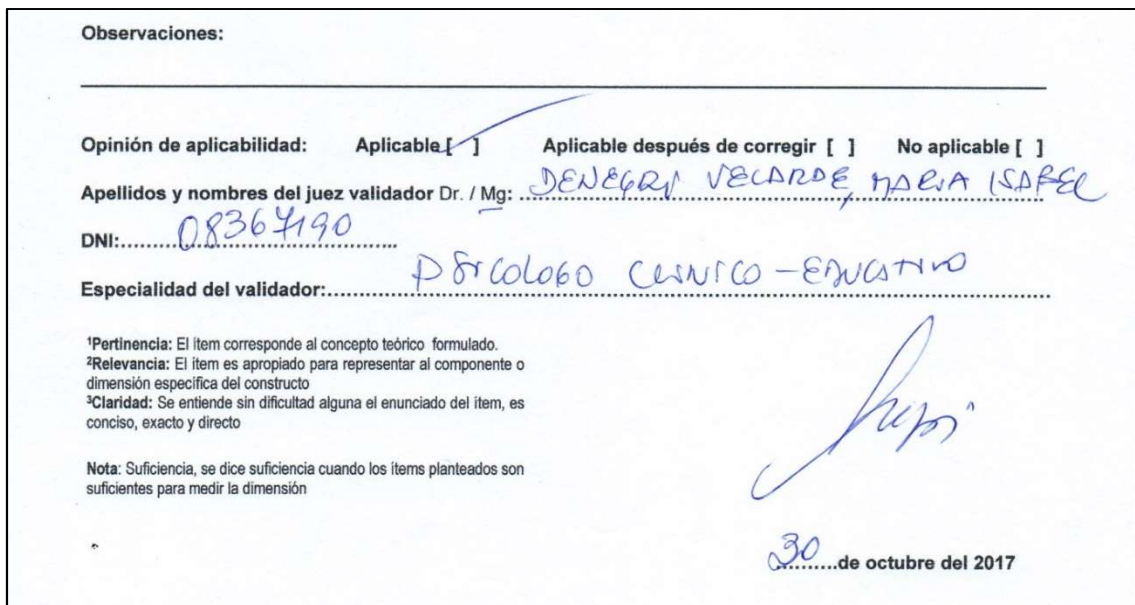 Observaciones:
Opinión de aplicabilidad: Aplicable [ ] Aplicable después de corregir [ ] No aplicable [ ]
Apellidos y nombres del juez validador Dr. / Mg: DENEGRI VELARDE, MARIA ISABEL
DNI: 08367190
Especialidad del validador: PSICOLOGO CLINICO - EDUCATIVO
¹Pertinencia: El ítem corresponde al concepto teórico formulado.
²Relevancia: El ítem es apropiado para representar al componente o
dimensión específica del constructo
³Claridad: Se entiende sin dificultad alguna el enunciado del ítem, es
conciso, exacto y directo
Nota: Suficiencia, se dice suficiencia cuando los ítems planteados son
suficientes para medir la dimensión
30 de octubre del 2017